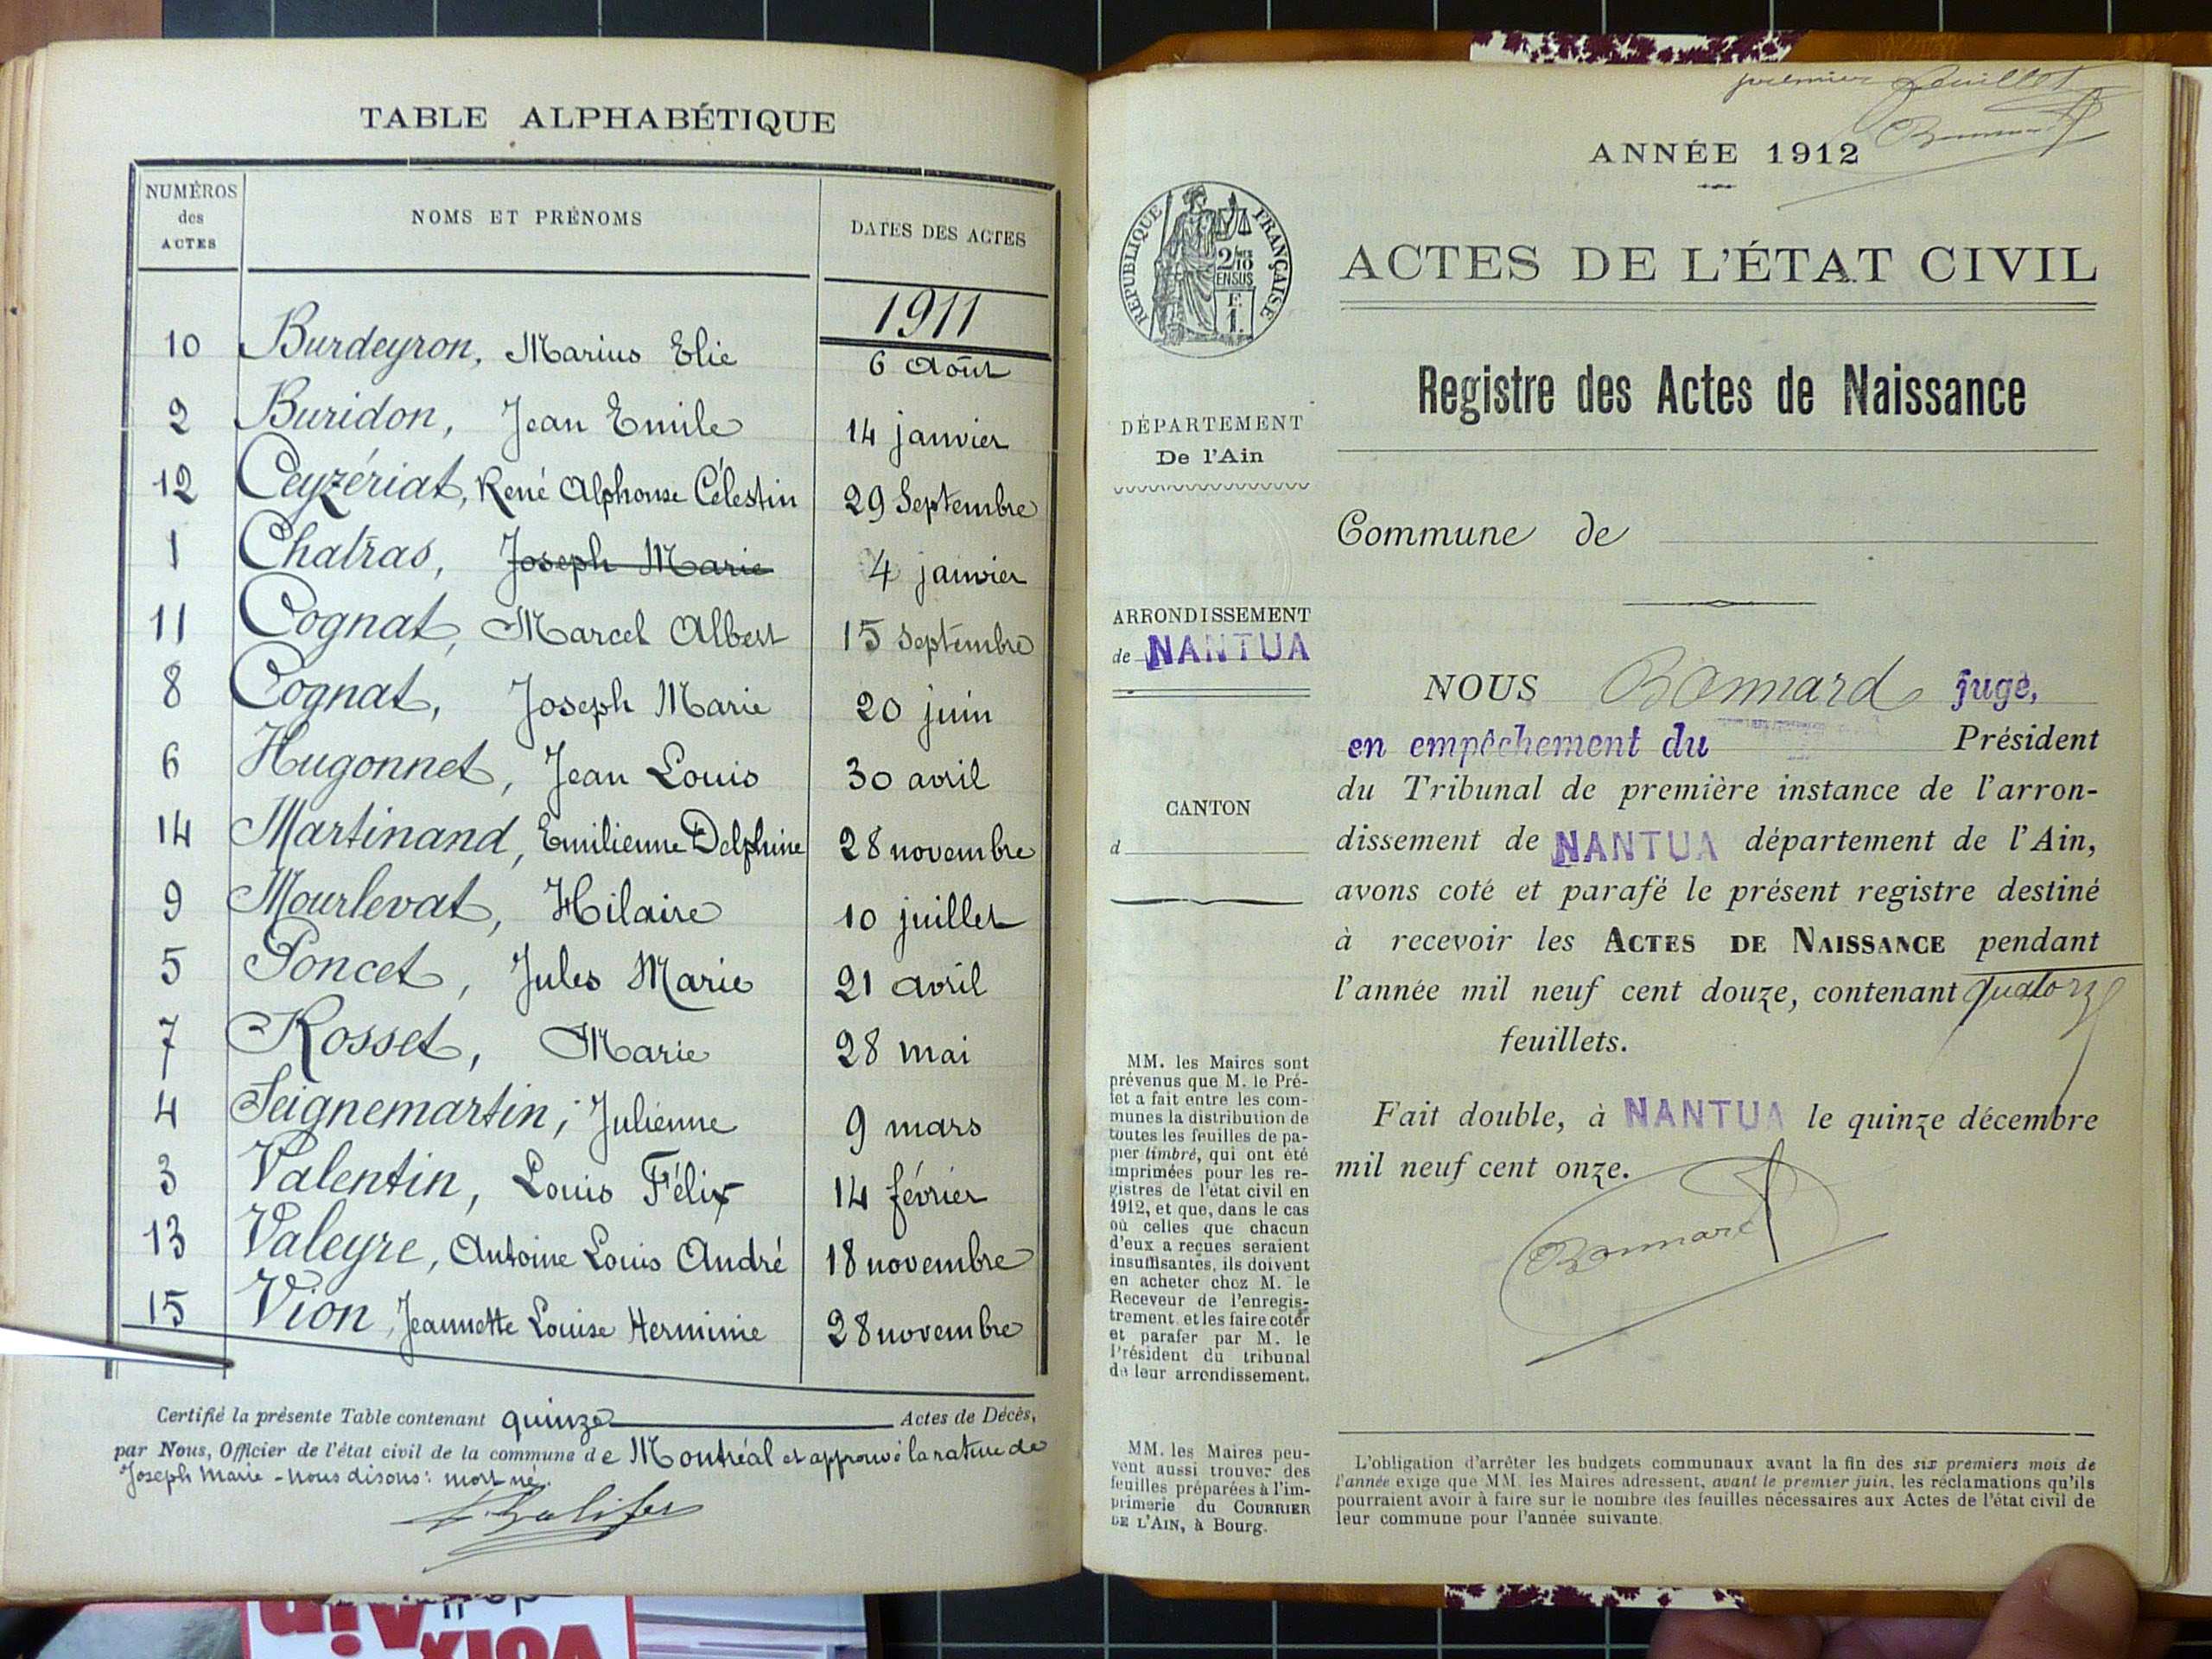 TABLE ALPHABÉTIQUE
NUMÉROS des ACTES
NOMS ET PRÉNOMS
DATES DES ACTES
1911
10 Burdeyron, Marius Elie 6 Août
2 Buridon, Jean Emile 14 janvier
12 Ceyzériat, René Alphonse Célestin 29 Septembre
1 Chatras, Joseph Marie 4 janvier
11 Cognat, Marcel Albert 15 septembre
8 Cognat, Joseph Marie 20 juin
6 Hugonnet, Jean Louis 30 avril
14 Martinand, Emilienne Delphine 28 novembre
9 Mourlevat, Hilaire 10 juillet
5 Poncet, Jules Marie 21 avril
7 Rosset, Marie 28 mai
4 Seignemartin, Julienne 9 mars
3 Valentin, Louis Félix 14 février
13 Valeyre, Antoine Louis André 18 novembre
15 Vion, Jeannette Louise Herminie 28 novembre
Certifié la présente Table contenant quinze Actes de Décès,
par Nous, Officier de l'état civil de la commune de Montréal et approuvé la rature de
Joseph Marie - nous disons : mort né.
premier feuillet
Bonnard
ANNÉE 1912
RÉPUBLIQUE FRANÇAISE
2/10 MES
EN SUS
F.
1.
ACTES DE L'ÉTAT CIVIL
Registre des Actes de Naissance
DÉPARTEMENT
De l'Ain
Commune de
ARRONDISSEMENT
de NANTUA
CANTON
d
NOUS Bonnard juge,
en empêchement du Président
du Tribunal de première instance de l'arron-
dissement de NANTUA département de l'Ain,
avons coté et parafé le présent registre destiné
à recevoir les ACTES DE NAISSANCE pendant
l'année mil neuf cent douze, contenant quatorze
feuillets.
Fait double, à NANTUA le quinze décembre
mil neuf cent onze.
Bonnard
MM. les Maires sont
prévenus que M. le Pré-
fet a fait entre les com-
munes la distribution de
toutes les feuilles de pa-
pier timbré, qui ont été
imprimées pour les re-
gistres de l'état civil en
1912, et que, dans le cas
où celles que chacun
d'eux a reçues seraient
insuffisantes, ils doivent
en acheter chez M. le
Receveur de l'enregis-
trement et les faire coter
et parafer par M. le
Président du tribunal
de leur arrondissement.
MM. les Maires peu-
vent aussi trouver des
feuilles préparées à l'im-
primerie du COURRIER
DE L'AIN, à Bourg.
L'obligation d'arrêter les budgets communaux avant la fin des six premiers mois de
l'année exige que MM. les Maires adressent, avant le premier juin, les réclamations qu'ils
pourraient avoir à faire sur le nombre des feuilles nécessaires aux Actes de l'état civil de
leur commune pour l'année suivante.
VOIX
AIN